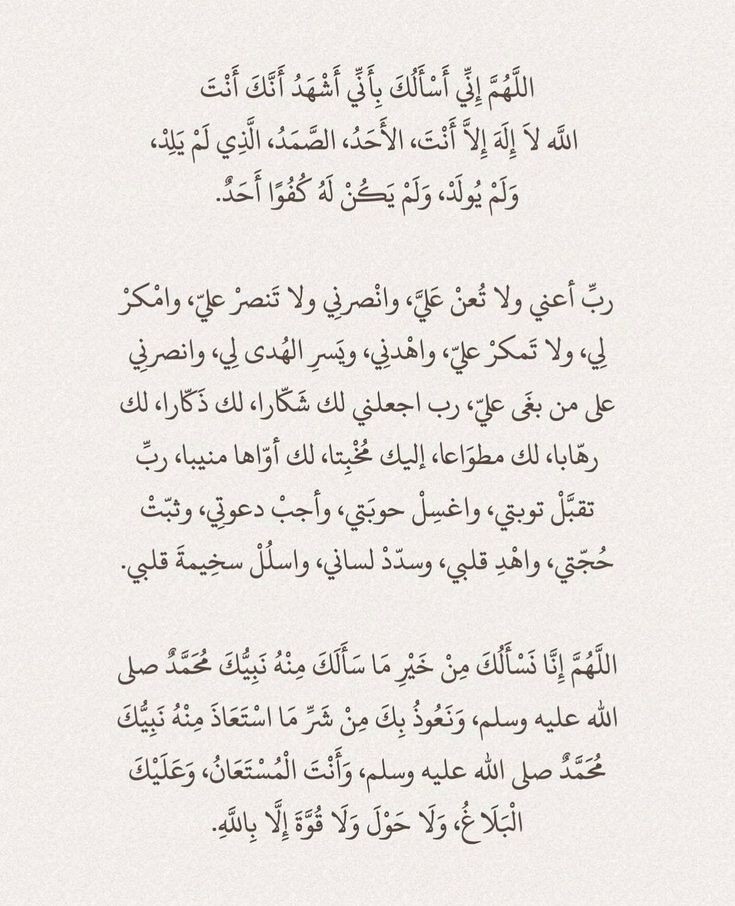 اللَّهُمَّ إِنِّي أَسْأَلُكَ بِأَنِّي أَشْهَدُ أَنَّكَ أَنْتَ
اللَّه لاَ إِلَهَ إِلاَّ أَنْتَ، الأَحَدُ، الصَّمَدُ، الَّذِي لَمْ يَلِدْ،
وَلَمْ يُولَدْ، وَلَمْ يَكُنْ لَهُ كُفُوًا أَحَدٌ.
ربِّ أعني ولا تُعنْ عَليَّ، وانْصرنِي ولا تَنصرْ عليّ، وامْكرْ
لِي، ولا تَمكرْ عليّ، واهْدنِي، ويَسرِ الهُدى لِي، وانصرنِي
على من بغَى عليّ، رب اجعلني لك شَكّارا، لك ذَكّارا، لك
رهّابا، لك مطوَاعا، إليك مُخْبِتا، لك أوّاها منيبا، ربِّ
تقبَّلْ توبتي، واغسِلْ حوبَتي، وأجبْ دعوتِي، وثبّتْ
حُجّتي، واهْدِ قلبي، وسدّدْ لساني، واسلُلْ سخِيمةَ قلبي.
اللَّهُمَّ إِنَّا نَسْأَلُكَ مِنْ خَيْرِ مَا سَأَلَكَ مِنْهُ نَبِيُّكَ مُحَمَّدٌ صلى
الله عليه وسلم، وَنَعُوذُ بِكَ مِنْ شَرِّ مَا اسْتَعَاذَ مِنْهُ نَبِيُّكَ
مُحَمَّدٌ صلى الله عليه وسلم، وَأَنْتَ الْمُسْتَعَانُ، وَعَلَيْكَ
الْبَلَاغُ، وَلَا حَوْلَ وَلَا قُوَّةَ إِلَّا بِاللَّهِ.